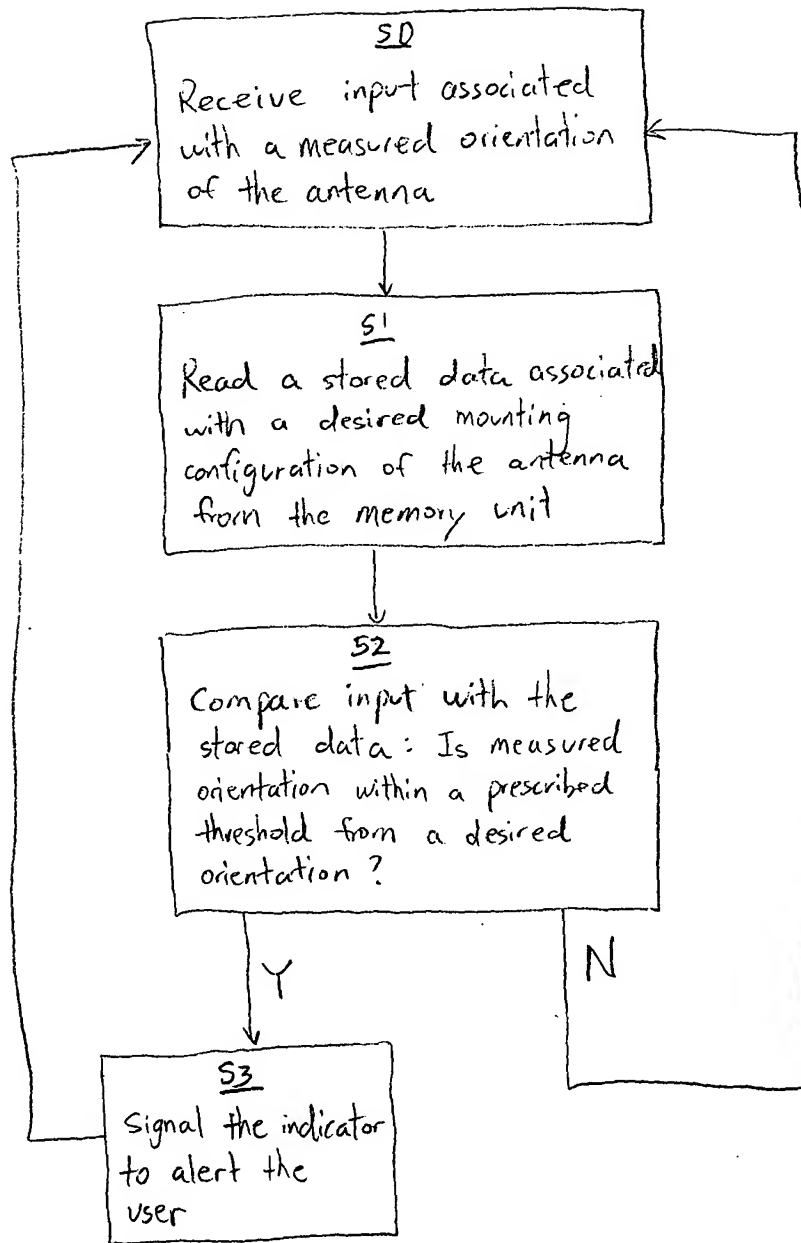 S0
Receive input associated
with a measured orientation
of the antenna
S1
Read a stored data associated
with a desired mounting
configuration of the antenna
from the memory unit
S2
Compare input with the
stored data: Is measured
orientation within a prescribed
threshold from a desired
orientation?
Y
N
S3
Signal the indicator
to alert the
user